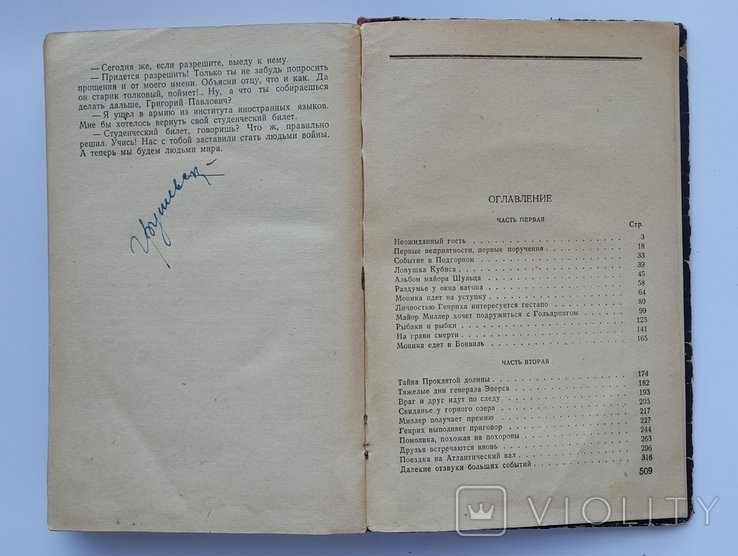 — Сегодня же, если разрешите, выеду к нему.
— Придется разрешить! Только ты не забудь попросить
прощения и от моего имени. Объясни отцу, что и как. Да
он старик толковый, поймет!.. Ну, а что ты собираешься
делать дальше, Григорий Павлович?
— Я ушел в армию из института иностранных языков.
Мне бы хотелось вернуть свой студенческий билет.
— Студенческий билет, говоришь? Что ж, правильно
решил. Учись! Нас с тобой заставили стать людьми войны.
А теперь мы будем людьми мира.
ОГЛАВЛЕНИЕ
ЧАСТЬ ПЕРВАЯ
Стр.
Неожиданный гость 3
Первые неприятности, первые поручения 18
Событие в Подгорном 33
Ловушка Кубиса 39
Альбом майора Шульца 45
Раздумье у окна вагона 58
Моника идет на уступку 64
Личностью Генриха интересуется гестапо 80
Майор Миллер хочет подружиться с Гольдрингом 99
Рыбаки и рыбки 125
На грани смерти 141
Моника едет в Бонвиль 165
ЧАСТЬ ВТОРАЯ
Тайна Проклятой долины 174
Тяжелые дни генерала Эверса 182
Враг и друг идут по следу 193
Свиданье у горного озера 205
Миллер получает премию 217
Генрих выполняет приговор 227
Помолвка, похожая на похороны 244
Друзья встречаются вновь 263
Поездка на Атлантический вал 296
Далекие отзвуки больших событий 316
509
VIOLITY